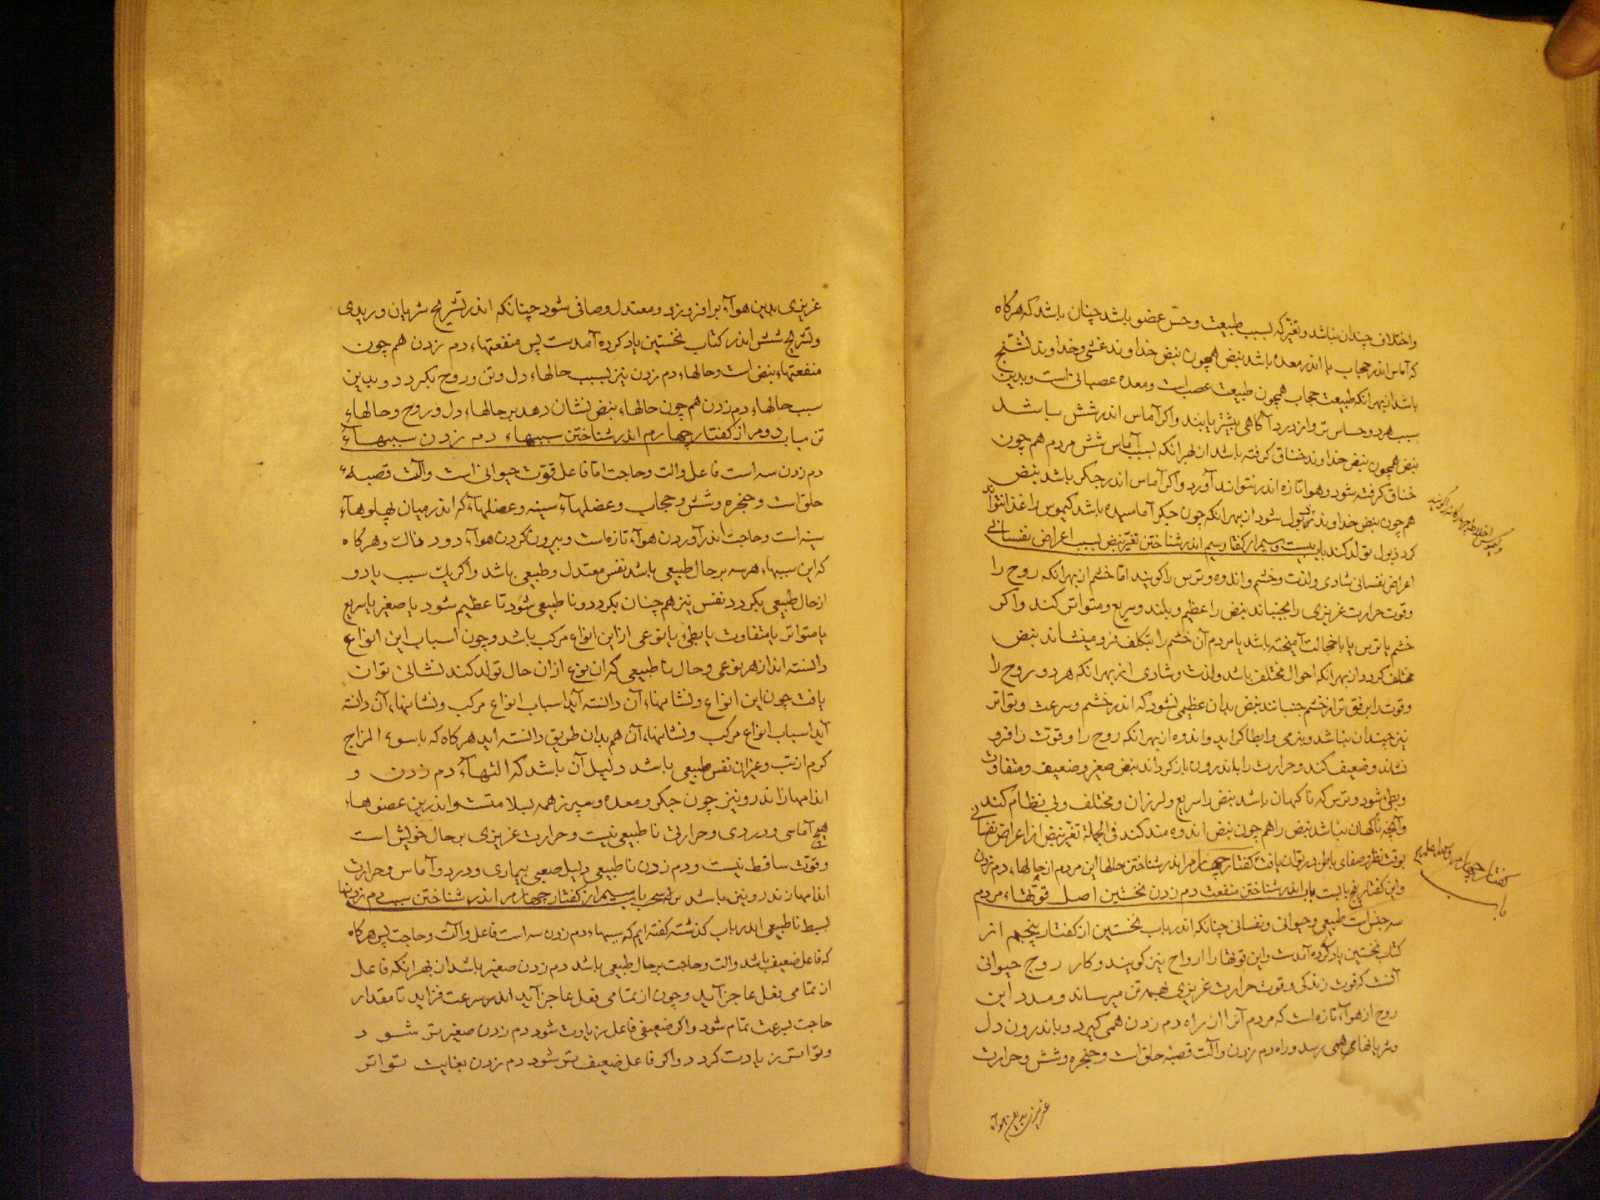 واختلاف چندان نباشد وتغیر که بسبب طبیعت وحس عضو باشد چنان باشد که هرکاه
که آماس اندر حجاب یا اندر معده باشد نبض همچون نبض خداوند غشی وخداوند تشنج
باشد از بهر انکه طبیعت حجاب همچون طبیعت عصب است ومعده عصبانی است وبدین
سبب هر دو حساس تر واز درد آگاهی بیشتر یابند واکر آماس اندر شش باشد
نبض همچون نبض خداوند خناق کرفته باشد از بهر انکه بسبب آماس شش مردم هم چون
خناق کرفته شود وهوا تازه اندر نتواند آورد واکر آماس اندر جکر باشد نبض
هم چون نبض خداوند ذبول شود از بهر انکه چون جکر آماسیده باشد کیموس را غذا نتواند
کرد ذبول تولد کند باب بیست وسیم از کفتار سیم اندر شناختن تغیر نبض بسبب اعراض نفسانی
اعراض نفسانی شادی ولذت وخشم واندوه وترس را کویند اما خشم از بهر انکه روح را
وقوت حرارت غریزی را بجنباند نبض را عظیم وبلند وسریع ومتواتر کند واکر
خشم با ترس یا با خجالت آمیخته باشد یا مردم آن خشم را بتکلف فرو مینشاند نبض
مختلف کردد از بهر انکه احوال مختلف باشد ولذت وشادی از بهر انکه هر دو روح را
وقوت را برفق تر از خشم جنبانند نبض بدان عظیمی نشود که اندر خشم وسرعت وتواتر
نیز چندان نباشد وبنرمی وابطا کراید واندوه از بهر انکه روح را وقوت را فرو
نشاند وضعیف کند وحرارت را باندرون باز کرداند نبض صغیر وضعیف ومتفاوت
وبطی شود وترس که ناکهان باشد نبض را سریع ولرزان ومختلف وبی نظام کند
وآنچه ناکهان نباشد نبض را هم چون نبض اندوه مند کند فی الجمله تغیر نبض از اعراض نفسانی
کفتار چهارم اندر شناختن حالها این مردم از حالهاء دم زدن
واین کفتار پنج باب است باب اندر شناختن منفعت دم زدن نخستین اصل قوتهاء مردم
سه جنس است طبیعی وحیوانی ونفسانی چنانکه اندر باب نخستین از کفتار پنجم از
کتاب نخستین یاد کرده آمدست واین قوتها را ارواح نیز کویند وکار روح حیوانی
آنست که قوت زندکی وقوت حرارت غریزی بهمه تن میرساند ومدد این
روح از هواء تازه است که مردم آنرا از راه دم زدن همی کیرد وباندرون دل
وشریانها همی رسد وراه دم زدن وآلت قصبه حلق است وحنجره وشش وحرارت
غریزی بدین هواء
غریزی بدین هواء برافروزد ومعتدل وصافی شود چنانکه اندر تشریح شریان وریدی
وتشریح شش اندر کتاب نخستین یاد کرده آمدست پس منفعتهاء دم زدن هم چون
منفعتهاء نبض است وحالهاء دم زدن نیز بسبب حالهاء دل وتن وروح بکردد وبدین
سبب حالهاء دم زدن هم چون حالهاء نبض نشان دهد بر حالهاء دل وروح وحالهاء
تن باب دوم از کفتار چهارم اندر شناختن سببهاء دم زدن سببهاء
دم زدن سه است فاعل والت وحاجت اما فاعل قوت حیوانی است وآلت قصبهء
حلق است وحنجره وشش وحجاب وعضلهاء سینه وعضلهاء که اندر میان پهلوهاء
سینه است وحاجت اندر آوردن هواء تازه است وبیرون کردن هواء دود ناک وهرکاه
که این سببهاء هر سه بر حال طبیعی باشد نفس معتدل وطبیعی باشد واکر یک سبب یا دو
از حال طبیعی بکردد نفس نیز هم چنان بکردد وناطبیعی شود تا عظیم شود یا صغیر یا سریع
یا متواتر یا متفاوت یا بطی یا نوعی از این انواع مرکب باشد وچون اسباب این انواع
دانسته اند از هر نوعی وحال ناطبیعی که آن نوع ازان حال تولد کند نشانی توان
یافت چون این انواع ونشانهاء آن دانسته آید اسباب انواع مرکب ونشانهاء آن دانسته
آید اسباب انواع مرکب ونشانهاء آن هم بدان طریق دانسته اید هرکاه که با سوء المزاج
کرم از تب وغیر آن نفس طبیعی باشد دلیل آن باشد که التهاء دم زدن و
اندامهاء اندرونین چون جکر ومعده وسپرز همه بسلامتست واندرین عضوها
هیچ آماسی ودردی وحرارتی ناطبیعی نیست وحرارت غریزی بر حال خویش است
وقوت ساقط نیست ودم زدن ناطبیعی دلیل صعبی بیماری ودرد وآماس وحرارت
اندامهاء اندرونین باشد باب سیم از کفتار چهارم اندر شناختن سبب دم زدنها
بسیط ناطبیعی اندر باب کذشته کفته ایم که سببهاء دم زدن سه است فاعل وآلت وحاجت پس هرکاه
که فاعل ضعیف باشد والت وحاجت بر حال طبیعی باشد دم زدن صغیر باشد از بهر انکه فاعل
از تمامی فعل عاجز آید وچون از تمامی فعل عاجز آید اندر سرعت فزاید تا مقدار
حاجت بسرعت تمام شود واکر ضعیفی فاعل زیادت شود دم زدن صغیر تر شود
وتواتر زیادت کردد واکر فاعل ضعیف تر شود دم زدن بغایت تواتر